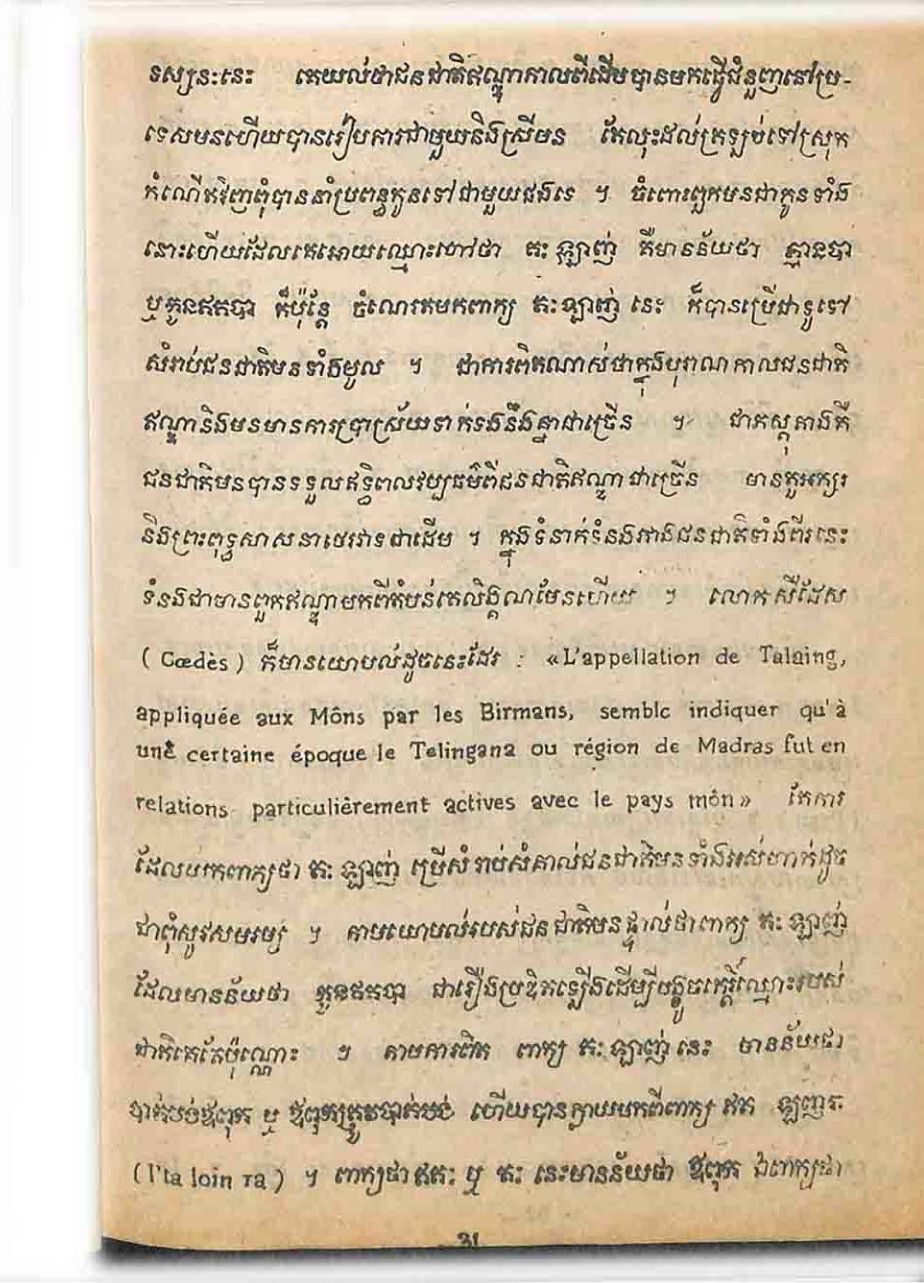 ទស្សនៈនេះ គេយល់ថាជនជាតិឥណ្ឌាកាលពីដើមបានមកធ្វើជំនួញនៅប្រ-
ទេសមនហើយបានរៀបការជាមួយនិងស្រីមន តែលុះដល់ត្រឡប់ទៅស្រុក
កំណើតវិញពុំបាននាំប្រពន្ធកូនទៅជាមួយផងទេ ។ ចំពោះពួកមនជាកូនទាំង
នោះហើយដែលគេអោយឈ្មោះហៅថា តៈ ឡាញ់ គឺមានន័យថា គ្មានបា
ឬកូនឥតបា ក៏ប៉ុន្តែ ចំណេរតមកពាក្យ តៈ ឡាញ់ នេះ ក៏បានប្រើជាទូទៅ
សំរាប់ជនជាតិមនទាំងមូល ។ ជាការពិតណាស់ថាក្នុងបុរាណកាលជនជាតិ
ឥណ្ឌានិងមនមានការប្រាស្រ័យទាក់ទងនឹងគ្នាជាច្រើន ។ ជាភស្តុតាងគឺ
ជនជាតិមនបានទទួលឥទ្ធិពលវប្បធម៌ពីជនជាតិឥណ្ឌាជាច្រើន មានតួអក្សរ
និងព្រះពុទ្ធសាសនាថេរវាទជាដើម ។ ក្នុងទំនាក់ទំនងរវាងជនជាតិទាំងពីរនេះ
ទំនងជាមានពួកឥណ្ឌាមកពីតំបន់តេលិង្គណមែនហើយ ។ លោក ស៊ីដែស
( Cœdès ) ក៏មានយោបល់ដូចនេះដែរ : «L'appellation de Talaing,
appliquée aux Môns par les Birmans, semble indiquer qu'à
une certaine époque le Telingana ou région de Madras fut en
relations particulièrement actives avec le pays môn» តែការ
ដែលយកពាក្យថា តៈ ឡាញ់ ប្រើសំរាប់សំគាល់ជនជាតិមនទាំងអស់ហាក់ដូច
ជាពុំសូវសមរម្យ ។ តាមយោបល់របស់ជនជាតិមនផ្ទាល់ថាពាក្យ តៈ ឡាញ់
ដែលមានន័យថា កូនឥតបា ជារឿងប្រឌិតឡើងដើម្បីបង្ខូចកេរ្តិ៍ឈ្មោះរបស់
ជាតិគេតែប៉ុណ្ណោះ ។ តាមការពិត ពាក្យ តៈ ឡាញ់ នេះ មានន័យថា
បាត់បង់ឪពុក ឬ ឪពុកត្រូវបាត់បង់ ហើយបានក្លាយមកពីពាក្យ ឥត ឡញរៈ
( l'ta loin ra ) ។ ពាក្យថា ឥតៈ ឬ តៈ នេះមានន័យថា ឪពុក ឯពាក្យថា
31